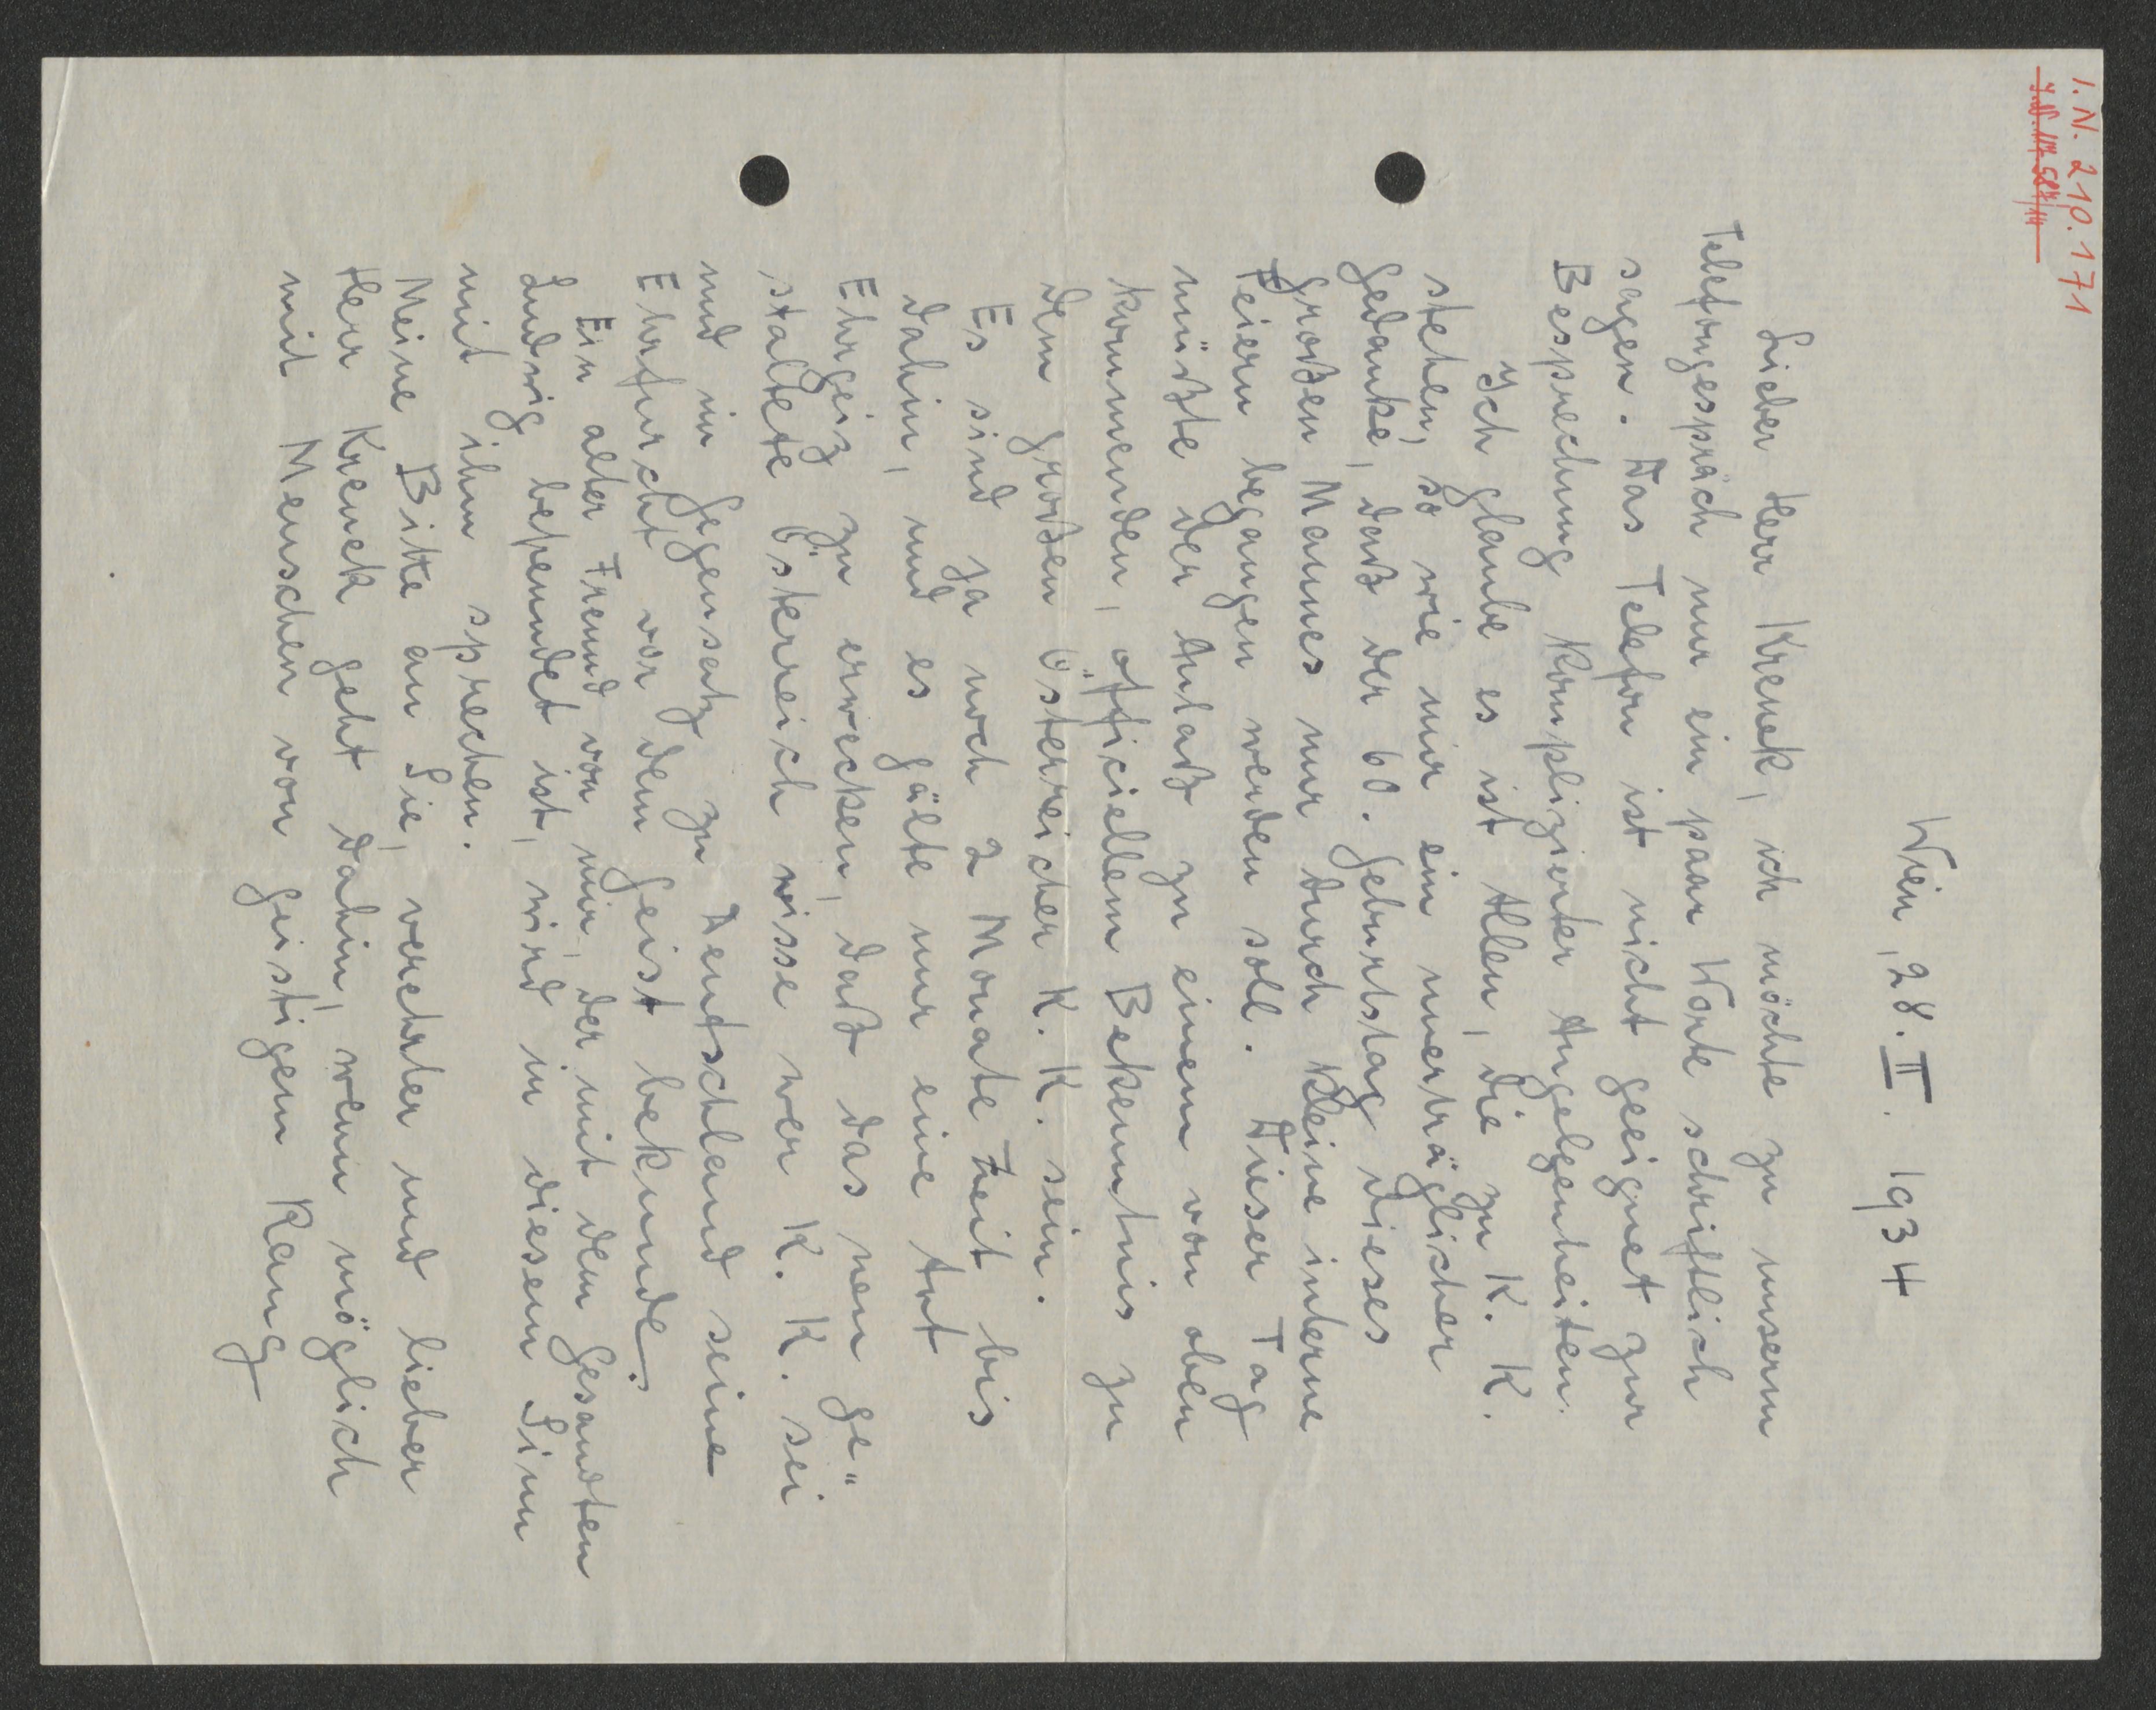 I. N. 210.171
Wien, 28. II. 1934
Lieber Herr Krenek, ich möchte zu unserm
Telefongespräch nur ein paar Worte schriftlich
sagen. Das Telefon ist nicht geeignet zur
Besprechung komplizierter Angelgenheiten.
Ich glaube es ist Allen, die zu K. K.
stehen, so wie mir ein unerträglicher
Gedanke, daß der 60. Geburtstag dieses
großen Mannes nur durch kleine interne
Feiern begangen werden soll. Dieser Tag
müßte der Anlaß zu einem von oben
kommenden, officiellem Bekenntnis zu
dem großen Österreicher K. K. sein.
Es sind ja noch 2 Monate Zeit bis
dahin, und es gälte nur eine Art
Ehrgeiz zu erwecken, daß das neu ge"
staltete Österreich wisse wer K. K. sei
und im Gegensatz zu Deutschland seine
Ehrfurcht vor dem Geist bekunde.
Ein alter Freund von mir, der mit dem Gesandten
Ludwig befreundet ist, wird in diesem Sinn
mit ihm sprechen.
Meine Bitte an Sie, verehrter und lieber
Herr Krenek geht dahin, wenn möglich
mit Menschen von geistigem Rang